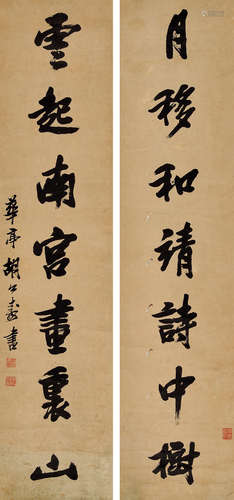 月移和靖詩中樹
雲起南宮畫裏山
華亭胡公壽書